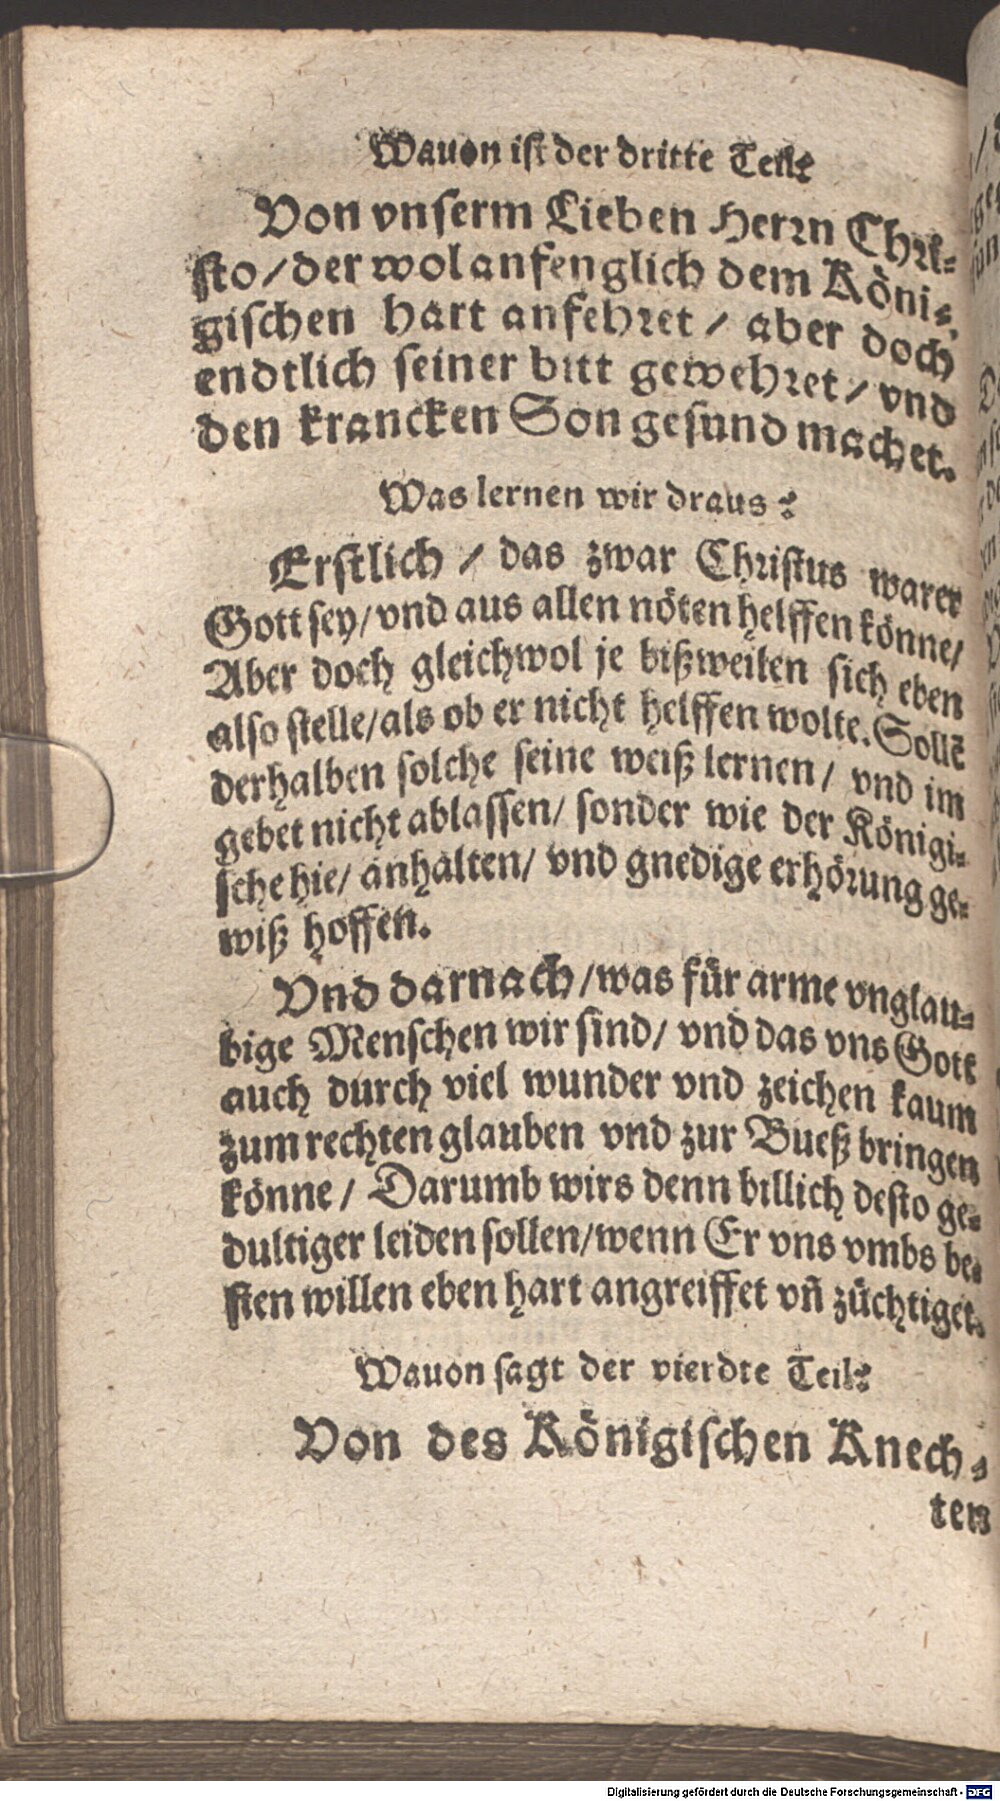 Wauon ist der dritte Teil?
Von vnserm Lieben Herrn Chri-
sto/ der wol anfenglich dem Köni-
gischen hart anfehret / aber doch
endtlich seiner bitt gewehret / vnd
den krancken Son gesund machet.
Was lernen wir draus?
Erstlich / das zwar Christus warer
Gott sey/ vnd aus allen nöten helffen könne/
Aber doch gleichwol je bißweilen sich eben
also stelle/als ob er nicht helffen wolte. Sollē
derhalben solche seine weiß lernen/ vnd im
gebet nicht ablassen/ sonder wie der Königi-
sche hie/ anhalten/ vnd gnedige erhörung ge-
wiß hoffen.
Vnd darnach/was für arme vnglau-
bige Menschen wir sind/ vnd das vns Gott
auch durch viel wunder vnd zeichen kaum
zum rechten glauben vnd zur Bueß bringen
könne/ Darumb wirs denn billich desto ge-
dultiger leiden sollen/wenn Er vns vmbs be-
sten willen eben hart angreiffet vñ züchtiget.
Wauon sagt der vierdte Teil?
Von des Königischen Knech-
ten
Digitalisierung gefördert durch die Deutsche Forschungsgemeinschaft - DFG